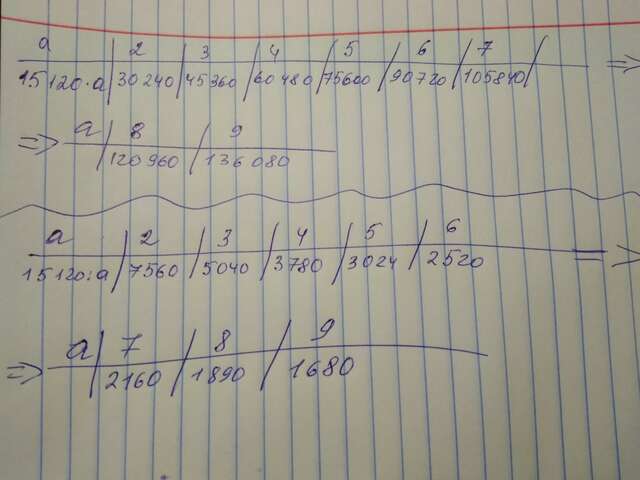 a 2 3 4 5 6 7
15 120·a 30240 45360 60480 75600 90720 105840 =>
=> a 8 9
120960 136080
a 2 3 4 5 6
15120:a 7560 5040 3780 3024 2520 =>
=> a 7 8 9
2160 1890 1680